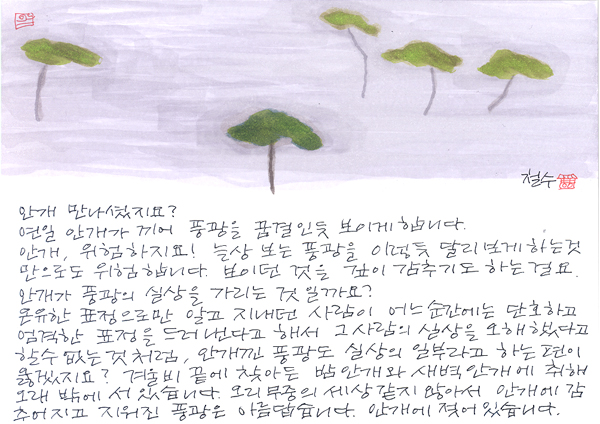 철수
안개 만나셨지요?
연일 안개가 끼어 풍광을 꿈결인듯 보이게 합니다.
안개, 위험하지요! 늘상 보는 풍광을 이렇듯 달리보게하는것
만으로도 위험합니다. 보이던 것을 깊이 감추기도 하는걸요.
안개가 풍광의 실상을 가리는 것일까요?
온유한 표정으로만 알고 지내던 사람이 어느순간에는 단호하고
엄격한 표정을 드러낸다고 해서 그사람의 실상을 오해했다고
할수 없는것처럼, 안개낀 풍광도 실상의 일부라고 하는편이
옳겠지요? 겨울비 끝에 찾아든 밤안개와 새벽안개에 취해
오래 밖에 서 있습니다. 오리무중의 세상같지 않아서 안개에 감
추어지고 지워진 풍광은 아름답습니다. 안개에 젖어 있습니다.